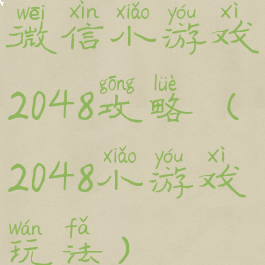 wēi xìn xiǎo yóu xì
微信小游戏
gōng lüè
2048攻略（
xiǎo yóu xì
2048小游戏
wán fǎ
玩法）